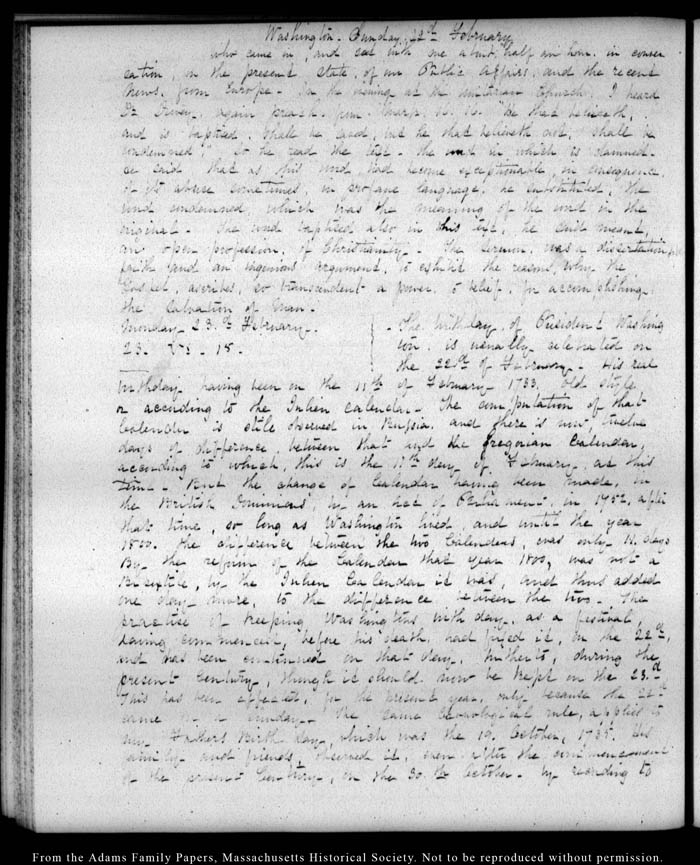 Washington. Sunday 22d. February
who came in, and sat with me about half an hour in conver
sation, on the present state, of our Public Affairs, and the recent
News, from Europe. In the evening at the Unitarian Church, I heard
Dr. Dewey, again preach, from Mark, "He that believeth,
and is baptised, shall be saved, but he that believeth not, shall be
condemned." So he read the text. The word in which is damned.
He said that as this word had become exceptionable, in consequence
of its abuse sometimes, in profane language, he substituted, the
word condemned, which was the meaning of the word in the
original. The word baptised also in this text, he said meant,
an open profession, of Christianity. The Sermon, was a dissertation
faith and an ingenious argument, to exhibit the reasons, why the
Gospel, ascribes, so transcendent a power, to belief, for accomplishing,
the Salvation of Man.
Monday 23. February.
23. 15.
The birthday, of President Washing
ton, is usually celebrated on
the 22d of February. His real
birthday having been on the 11th of February 1732 old style
or according to the Julian Calendar. The computation of that
Calendar is still observed in Russia, and there is now, twelve
days of difference, between that and the Gregorian Calendar,
according to which, this is the 11th day of February, at this
time. But the change of Calendar having been made, in
the British Dominions, by an act of Parliament, in 1752, after
that time, so long as Washington lived, and until the year
1800. the difference between the two Calendars, was only 11. days
By the reform of the Calendar that year 1800, was not a
Bisextile, by the Julian Calendar it was, and thus added
one day more, to the difference between the two. The
practice of keeping Washingtons birth day, as a festival,
having commenced, before his death, had fixed it, on the 22d,
and has been continued on that day, hitherto, during the
present Century, though it should now be kept on the 23.d
This has been effected, for the present year, only because the 22d
came on a Sunday. The same chronological rule, applied to
my Fathers Birth day, which was the 19. October, 1735. his
family and friends, observed it, even after the commencement
of the present Century, on the 30.th October. by according to
From the Adams Family Papers, Massachusetts Historical Society. Not to be reproduced without permission.